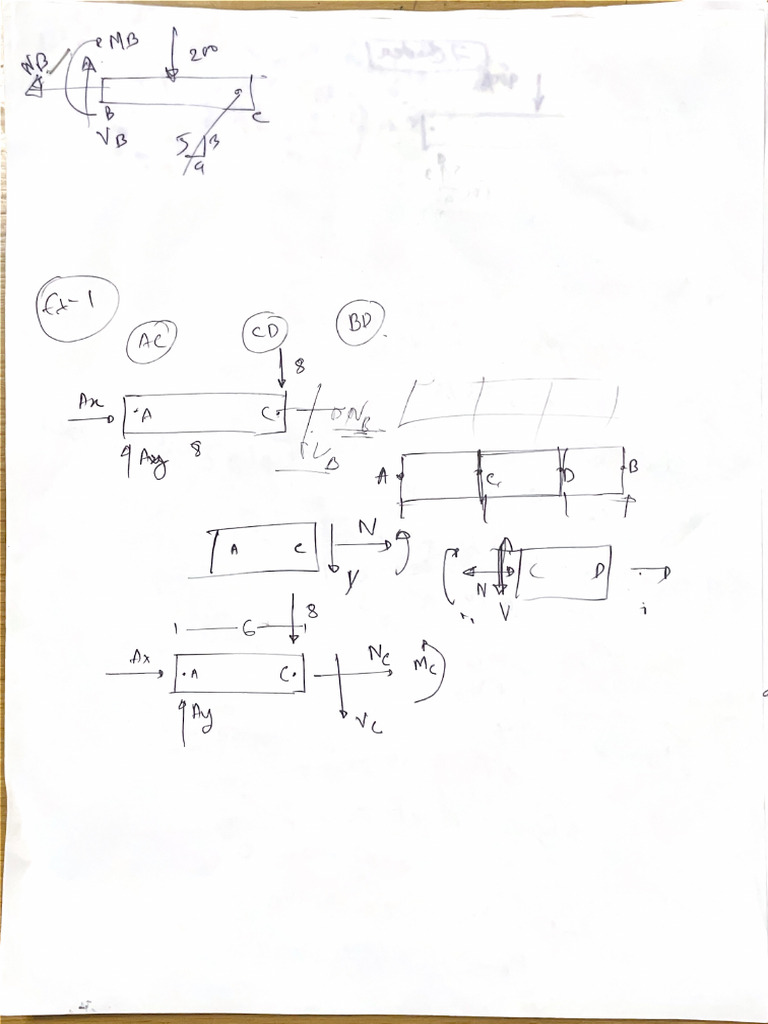 MB
NB
200
B
C
VB
5
3
Ex-1
AC
CD
BD
8
Ax
A
C
NB
Ay
8
VB
A
C
D
B
A
C
N
V
C
D
N
V
8
6
Ax
A
C
NC
MC
Ay
VC